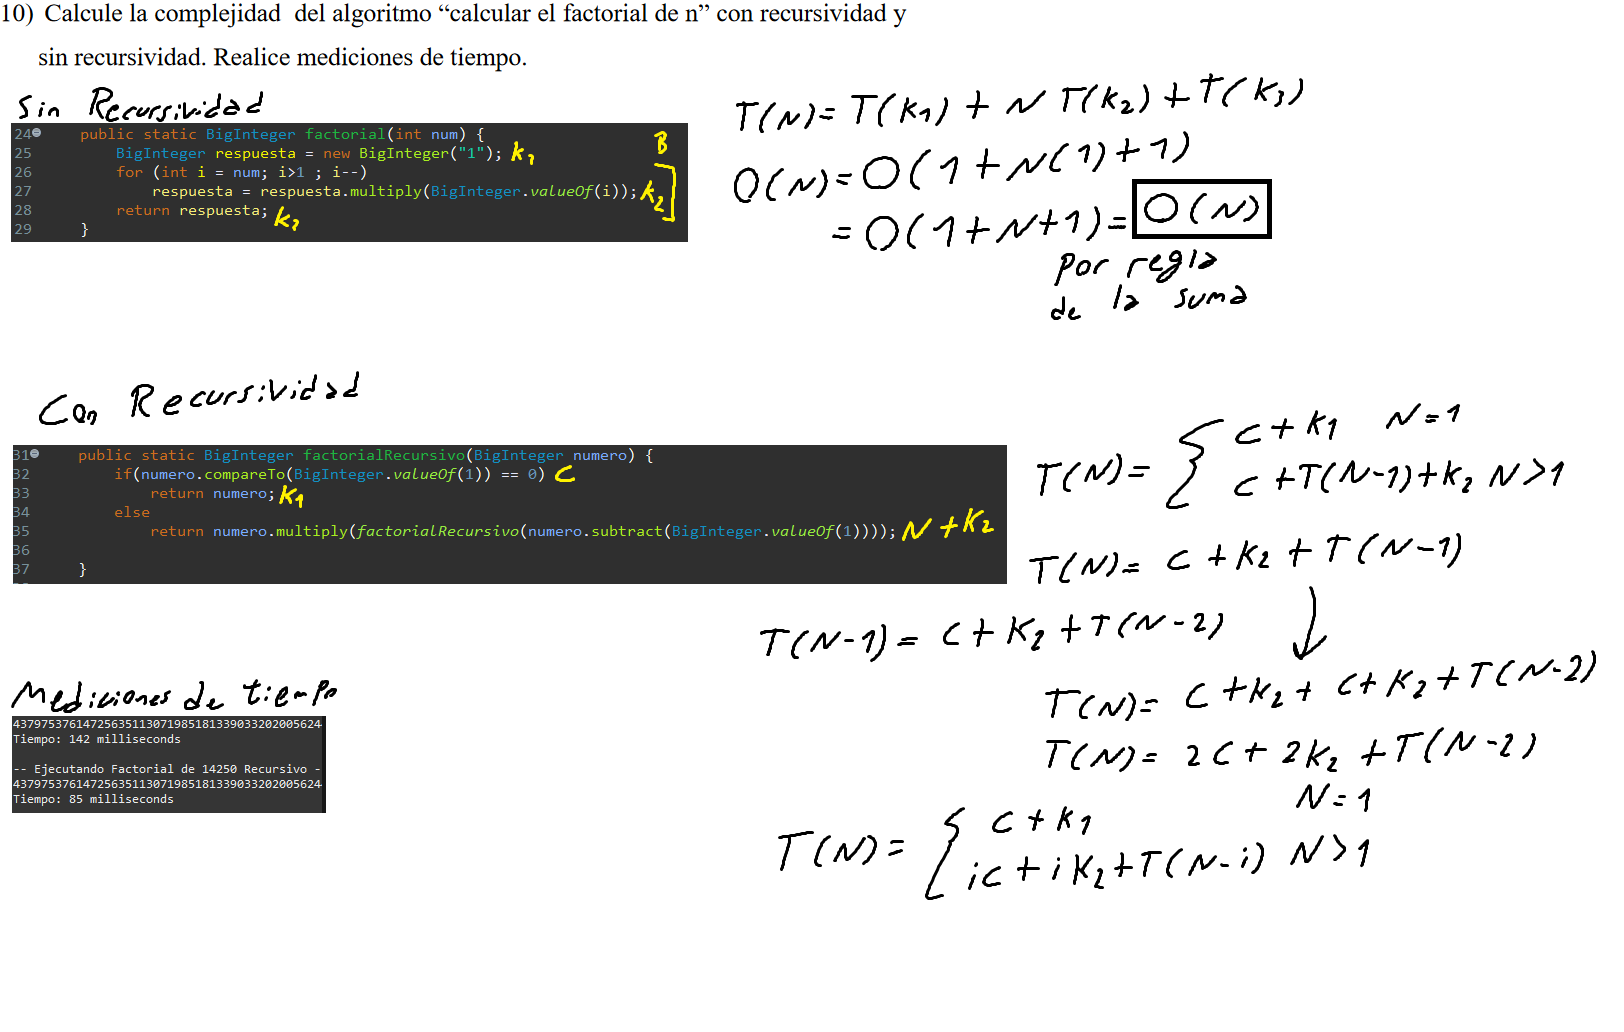 10) Calcule la complejidad del algoritmo “calcular el factorial de n” con recursividad y
sin recursividad. Realice mediciones de tiempo.
Sin Recursividad
24 public static BigInteger factorial(int num) {
25 BigInteger respuesta = new BigInteger("1"); k1
26 for (int i = num; i>1 ; i--)
27 respuesta = respuesta.multiply(BigInteger.valueOf(i)); k2
28 return respuesta; k3
29 }
B
T(N)= T(k1) + N T(k2) + T(k3)
O(N)= O(1+N(1)+1)
= O(1+N+1)= O(N)
Por regla
de la suma
Con Recursividad
31 public static BigInteger factorialRecursivo(BigInteger numero) {
32 if(numero.compareTo(BigInteger.valueOf(1)) == 0) C
33 return numero; k1
34 else
35 return numero.multiply(factorialRecursivo(numero.subtract(BigInteger.valueOf(1)))); N + k2
36
37 }
T(N)= { c + k1 N=1
c + T(N-1)+k2 N>1
T(N)= c + k2 + T(N-1)
T(N-1) = c + k2 + T(N-2)
T(N)= c + k2 + c + k2 + T(N-2)
T(N)= 2c + 2k2 + T(N-2)
T(N)= { c + k1 N=1
ic + i k2 + T(N-i) N>1
Mediciones de tiempo
43797537614725635113071985181339033202005624
Tiempo: 142 milliseconds
-- Ejecutando Factorial de 14250 Recursivo -
43797537614725635113071985181339033202005624
Tiempo: 85 milliseconds